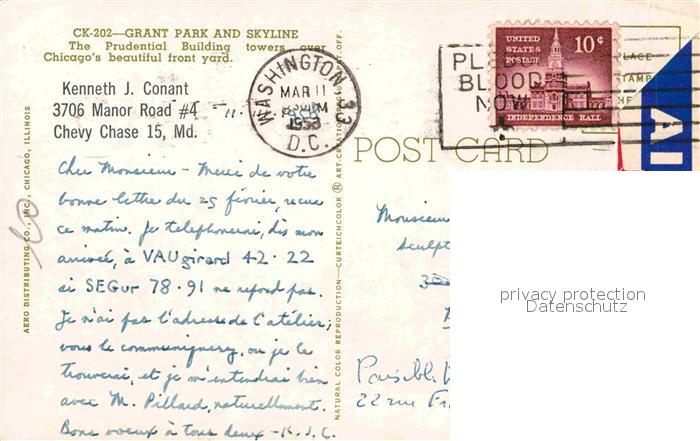 CK-202—GRANT PARK AND SKYLINE
The Prudential Building towers over
Chicago's beautiful front yard.
Kenneth J. Conant
3706 Manor Road #4
Chevy Chase 15, Md.
Cher Monsieur - Merci de votre
bonne lettre du 25 février, reçue
ce matin. Je telephonerai, dès mon
arrivée, à VAUgirard 42·22
si SEGur 78·91 ne repond pas.
Je n'ai pas l'adresse de l'atelier;
vous le communiquerez, ou je le
trouverai, et je m'entendrai bien
avec M. Pillard, naturellement.
Bons voeux à tous deux - K.J.C.
AERO DISTRIBUTING CO., INC., CHICAGO, ILLINOIS
NATURAL COLOR REPRODUCTION—CURTEICHCOLOR ® ART-CREATION
PAT. OFF.
WASHINGTON 33
MAR 11
PM
D.C.
BLOOD
NOW
UNITED
STATES
POSTAGE
10¢
INDEPENDENCE HALL
POST CARD
PLACE
STAMP
Monsieur
sculpt
22 rue
privacy protection
Datenschutz